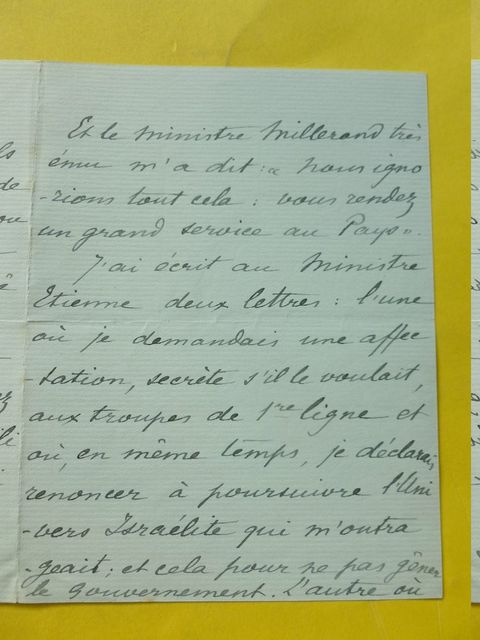 Et le Ministre Millerand très
ému m'a dit : « nous igno
-rions tout cela : vous rendez
un grand service au Pays ».
J'ai écrit au Ministre
Etienne deux lettres : l'une
où je demandais une affec
-tation, secrète s'il le voulait,
aux troupes de 1re ligne et
où, en même temps, je déclarais
renoncer à poursuivre l'Uni
-vers Israélite qui m'outra
-geait ; et cela pour ne pas gêner
le Gouvernement. L'autre où